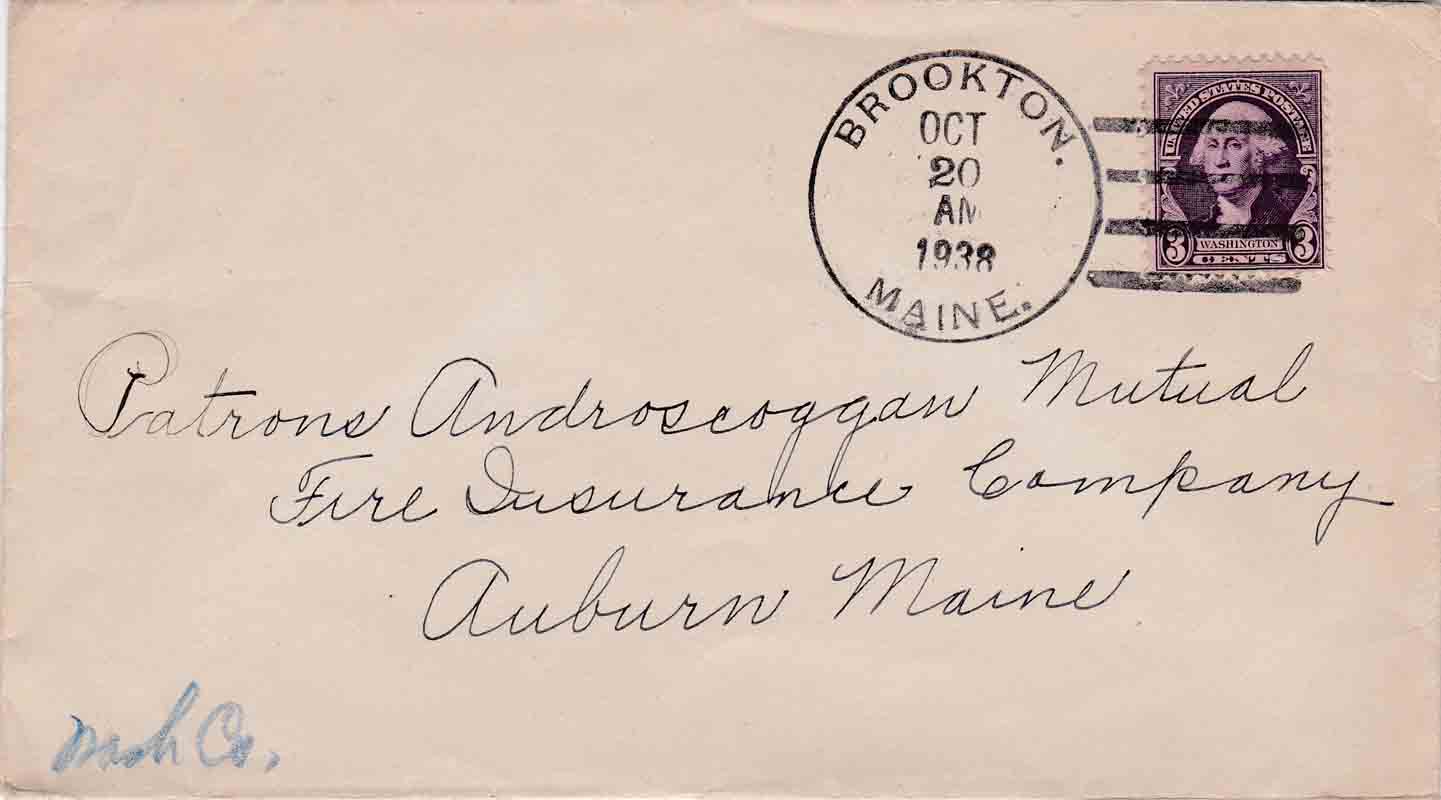 BROOKTON.
OCT
20
AM
1938
MAINE.
UNITED STATES POSTAGE
3 WASHINGTON 3
CENTS
Patrons Androscoggan Mutual
Fire Insurance Company
Auburn Maine
Wash Co.